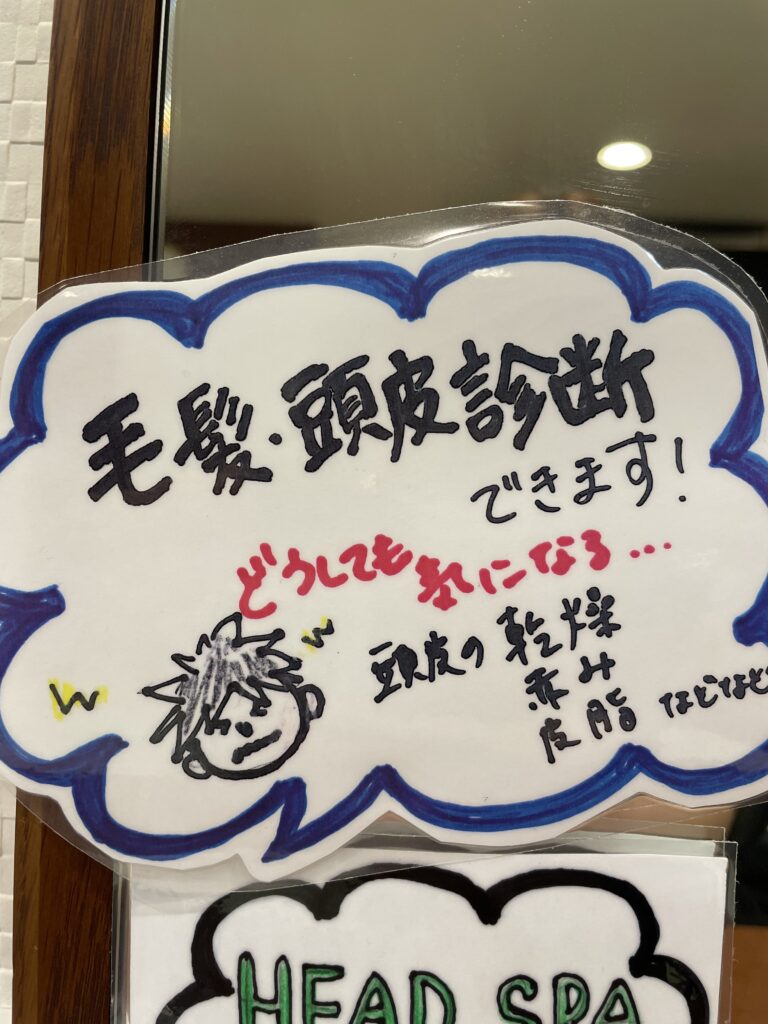 毛髪・頭皮診断
できます!
どうしても気になる...
頭皮の乾燥
赤み
皮脂 などなど
HEAD SPA